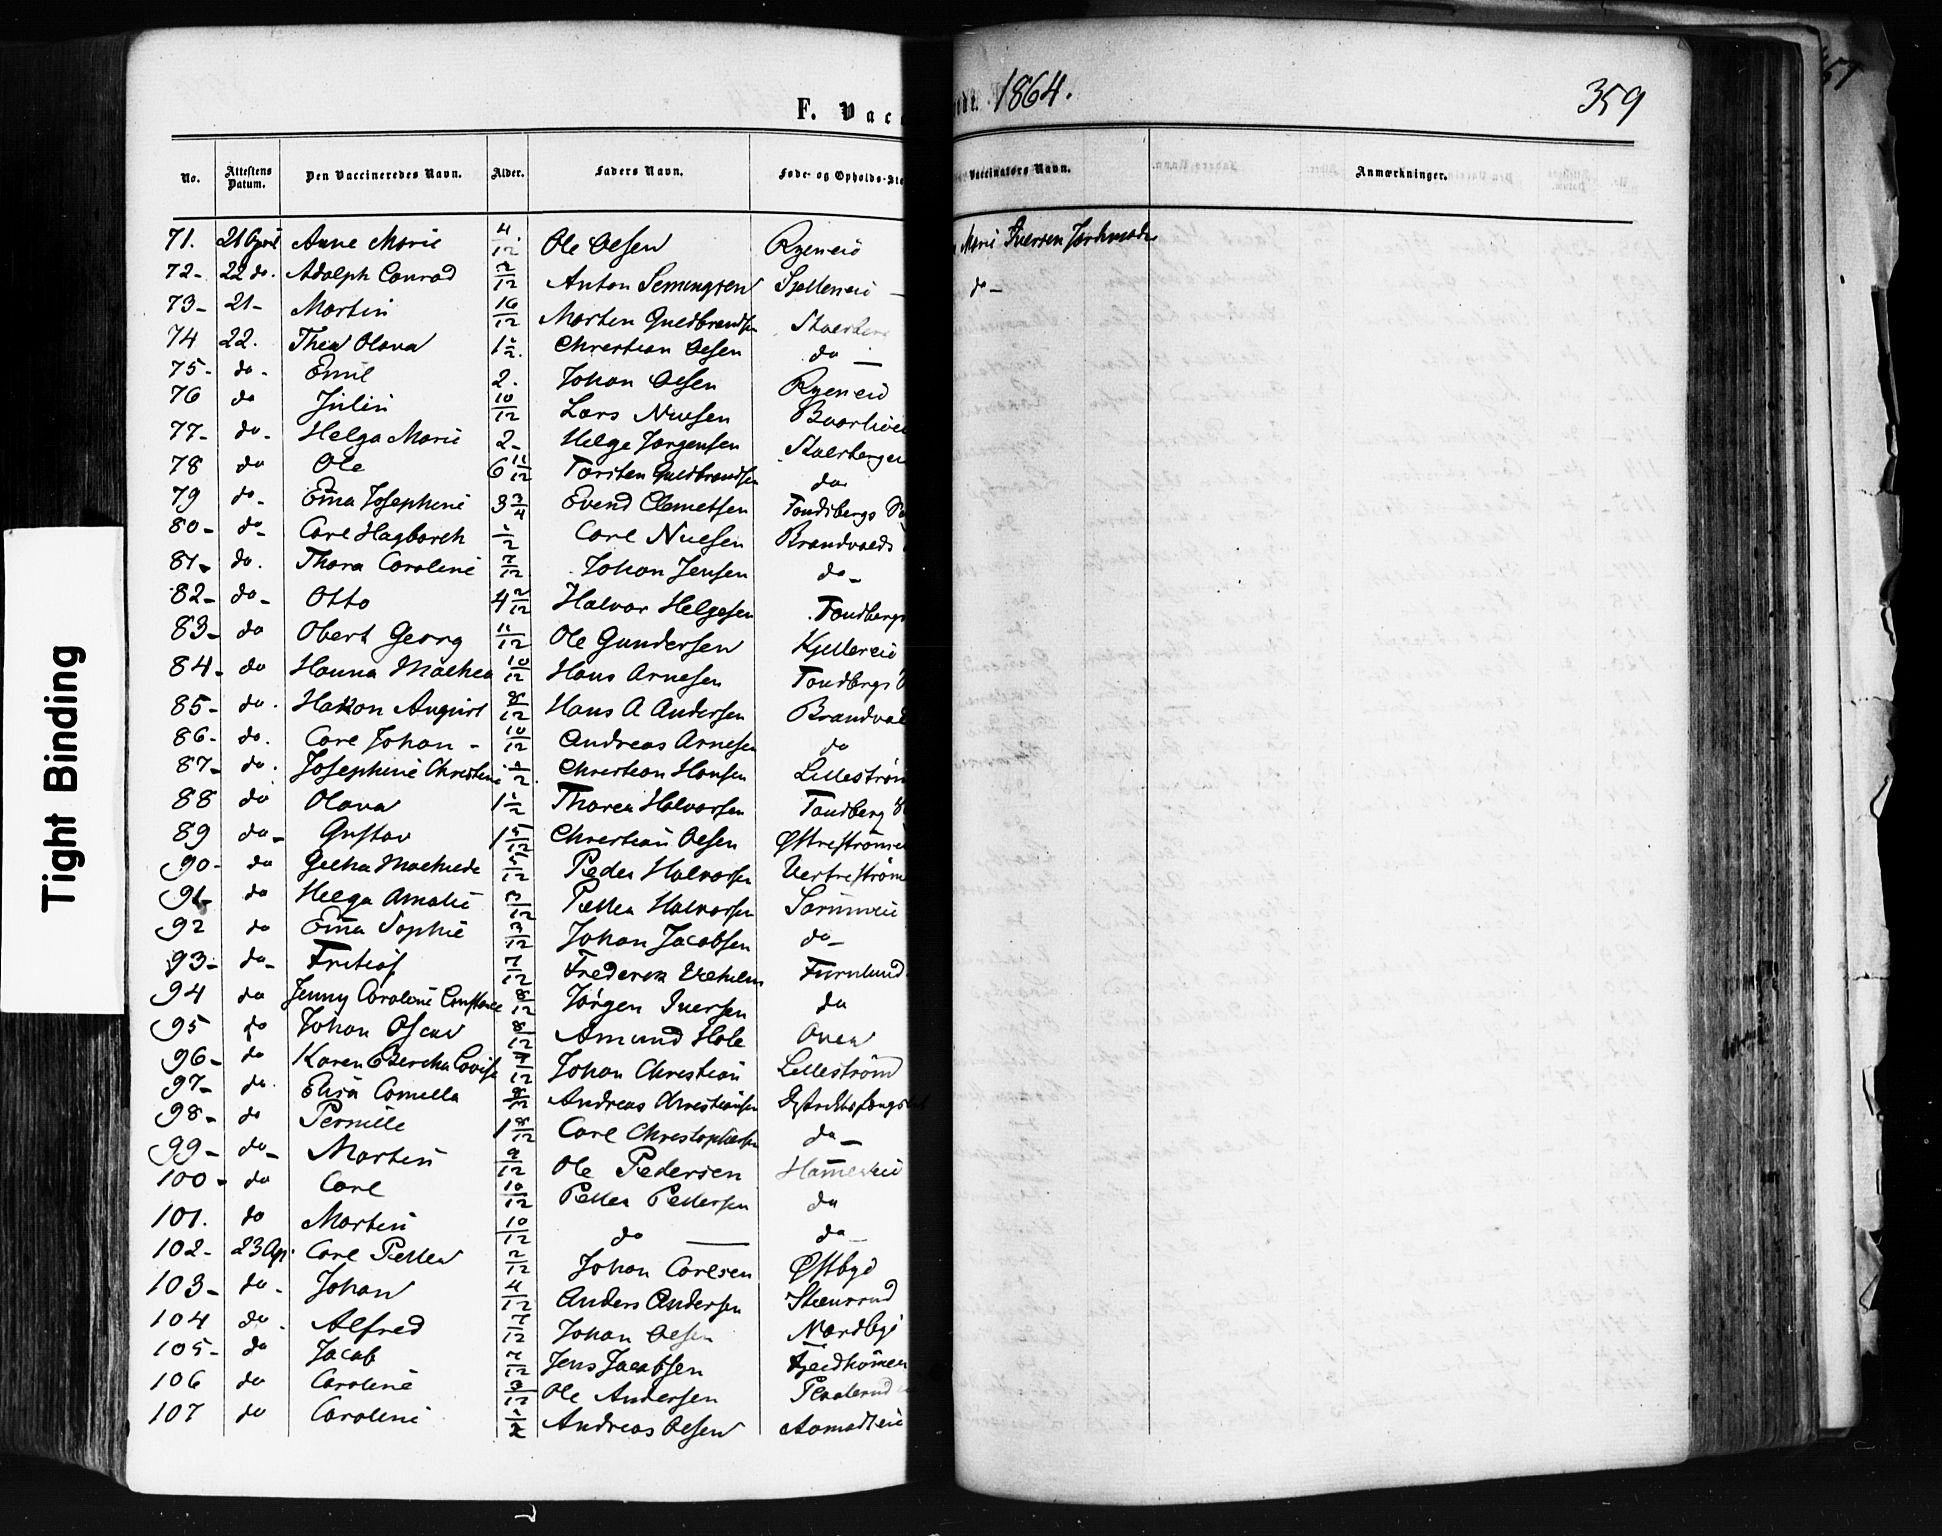 Tight Binding
F. Vacc
1864.
359
No. Attestens Datum. Den Vaccineredes Navn. Alder. Faders Navn. Føde- og Opholds-Ste
Vaccinators Navn. Anmærkninger.
71. 21 April Anne Marie 4/12 Ole Olsen Ryeneie
72- 22 do. Adolph Conrad 7/12 Anton Semingsen
do -
73- 21- Martin 10/12 Morten Guldbrandsen
74 22. Thea Olava 1 1/2. Christian Olsen do —
75- do - Emil 2. Johan Olsen Ryeneie
76 do Julin 10/12 Lars Nielsen
77- do - Helga Marie 2- Helge Jørgensen
78 do Ole 6 11/12 Torsten Guldbrandsen do
79 do - Ema Josephine 3 3/4 Evend Clemetsen
80- do - Carl Hagbarth 1/2 Carl Nielsen Brandvolds
81- do. Thora Caroline 7/12 Johan Jensen do -
82- do - Otto 4 2/12 Halvor Helgesen Tondbergs
83- do Obert Georg 11/12 Ole Gundersen Kjellereie
84- do Hanna Mathea 10/12 Hans Arnesen Tondbergs
85- do. Hakon August 8/12 Hans A Andersen Brandvol
86- do. Carl Johan - 10/12 Andreas Arnesen do
87- do. Josephine Christine 1/2. Christian Hansen Lillestrøm
88 do Olava 1 1/2 Thorer Halvorsen Tondberg
89 do - Gustav 1 5/12 Christian Olsen Østrestrømm
90- do Mathilde 5/12 Peder Halvorsen Vestrestrøm
91- do Helga Amalie 3/12 Petter Halvorsen Sørumeie
92 do Ema Sophie 3/12 Johan Jacobsen do -
93- do - Fritiof 7/12 Frederik Furulund
94 do Jenny Caroline Constance 8/12 Jørgen Iversen do
95 do Johan Oscar 8/12 Amund Hole
96- do Karen Bertha Lovise 4/12 Johan Christian Lillestrøm
97- do. Elisa Camilla 8/12 Andreas Christiansen
98- do Pernille 1 8/12 Carl Christophersen do -
99- do - Martin 9/12 Ole Pedersen Hammereie
100- do Carl 10/12 Petter Pettersen do
101. do Martin 10/12 do — do -
102- 23 Ap. Carl Petter 2/12 Johan Carlsen Østbye
103- do - Johan 4/12 Anders Andersen Steensrud
104 do. Alfred 7/12 Johan Olsen Nordbye
105- do Jacob 7/12 Jens Jacobsen
106 do Caroline 3/12 Ole Andersen
107 do Caroline 1/2 Andreas Olsen